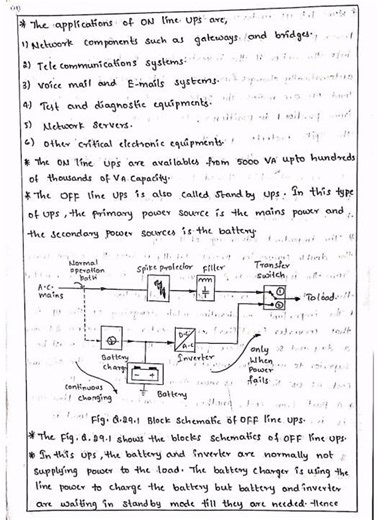 * The applications of ON line UPS are,
1) Network components such as gateways and bridges.
2) Telecommunications systems.
3) Voice mail and E-mails systems.
4) Test and diagnostic equipments.
5) Network servers.
6) Other critical electronic equipments.
* The ON line UPS are availables from 5000 VA upto hundreds
of thousands of VA capacity.
* The OFF line UPS is also called Standby UPS. In this type
of UPS, the primary power source is the mains power and
the secondary power sources is the battery.
Normal operation path
Spike protector
Filler
Transfer switch
A.C. mains
①
②
To load
Battery charg
D.C
A.C
Inverter
only When Power fails
continuous changing
Battery
Fig. Q.29.1 Block Schematic of OFF line UPS.
* The Fig. Q.29.1 shows the blocks schematics of OFF line UPS.
* In this UPS, the battery and inverter are normally not
supplying power to the load. The battery charger is using the
line power to charge the battery but battery and inverter
are waiting in standby mode till they are needed. Hence